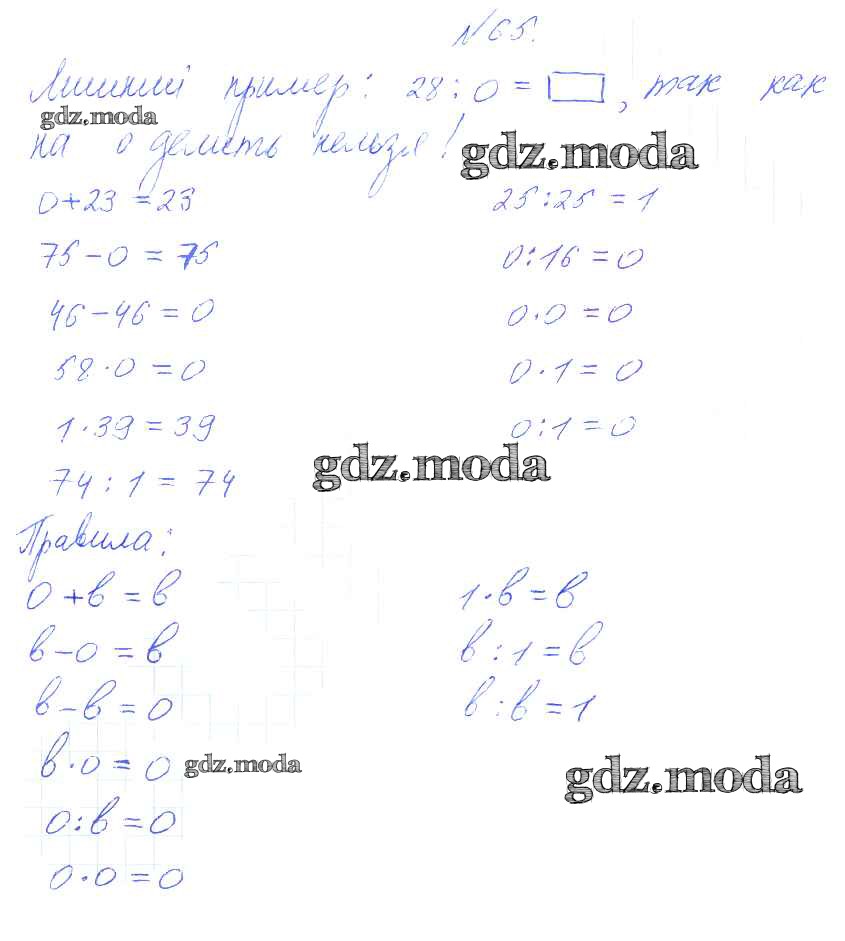 №65.
Лишний пример: 28:0=□, так как
gdz.moda
на 0 делить нельзя!
gdz.moda
0+23=23
25:25=1
75-0=75
0:16=0
46-46=0
0·0=0
58·0=0
0·1=0
1·39=39
0:1=0
gdz.moda
74:1=74
Правила:
0+в=в
1·в=в
в-0=в
в:1=в
в-в=0
в:в=1
в·0=0
gdz.moda
gdz.moda
0:в=0
0·0=0